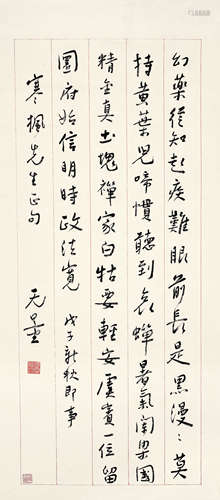 幻藥從知起疾難眼前長是黑漫：莫
持黃葉兒啼慣聽到哀蟬暑氣闌果國
精金真土塊禪家白牯要輕安虛賓一位留
圜府始信明時政法寬 戊子新秋即事
寒楓先生正句
无量